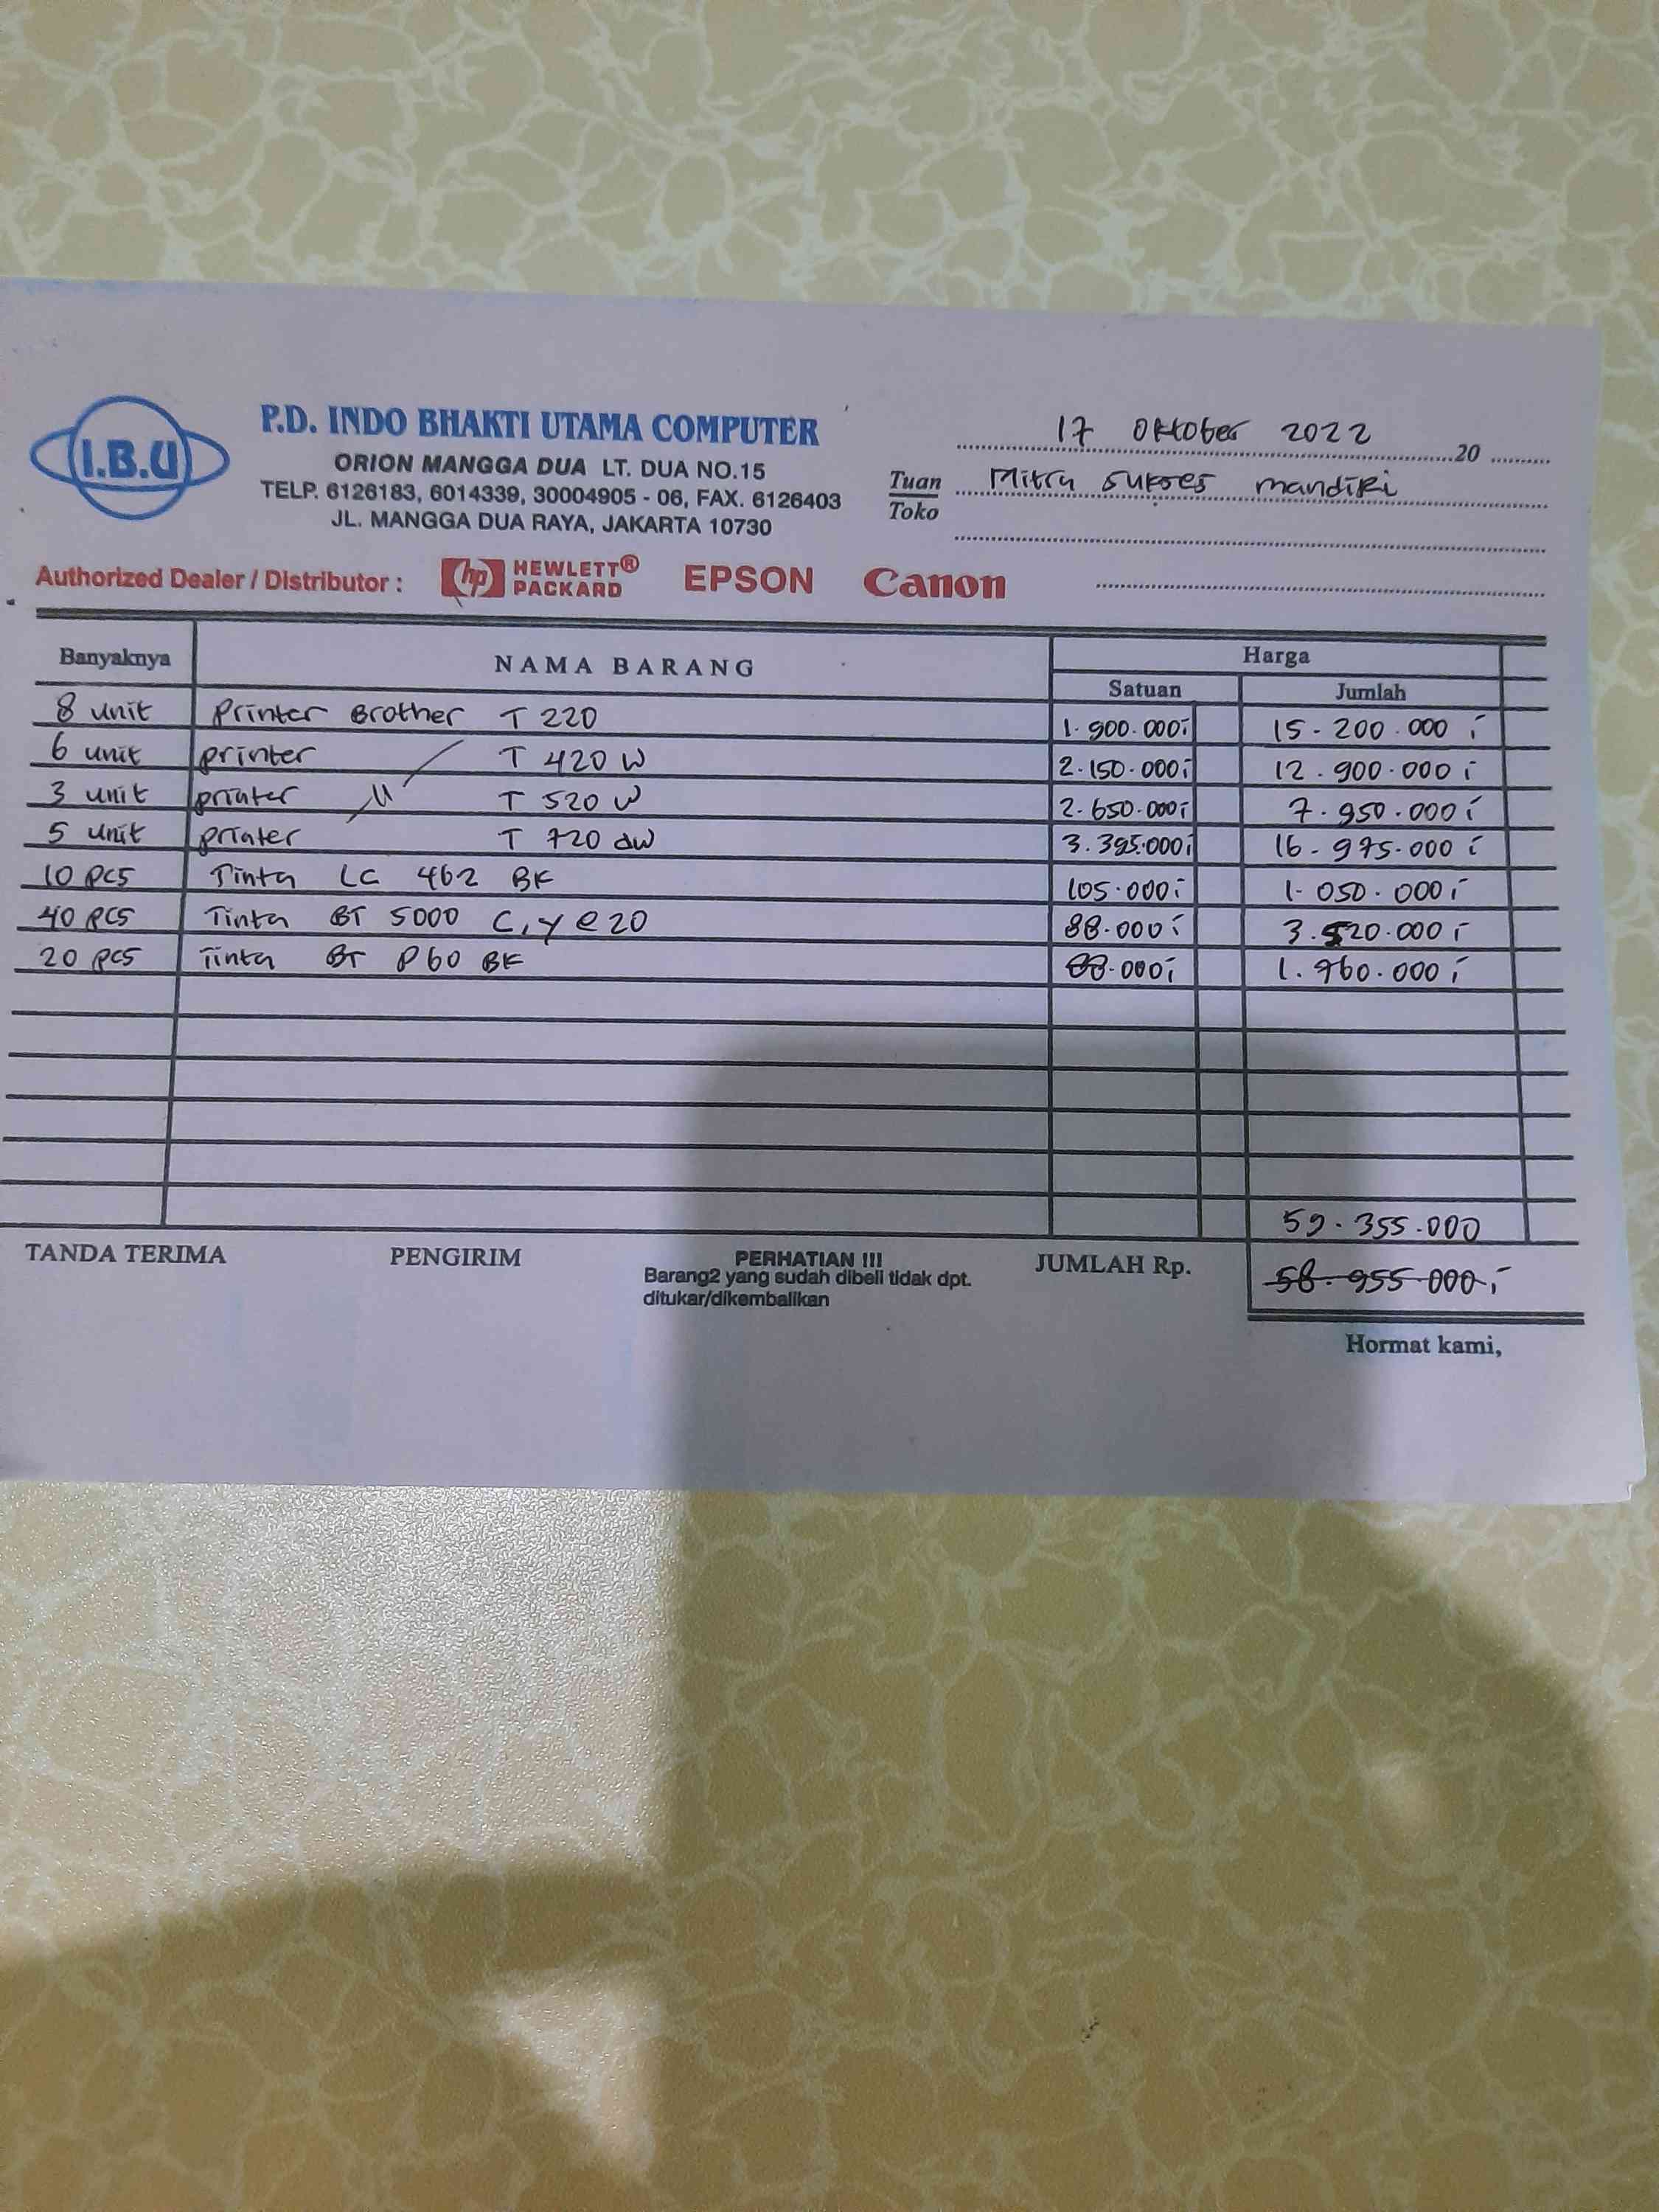 I.B.U
P.D. INDO BHAKTI UTAMA COMPUTER
ORION MANGGA DUA LT. DUA NO.15
TELP. 6126183, 6014339, 30004905 - 06, FAX. 6126403
JL. MANGGA DUA RAYA, JAKARTA 10730
17 Oktober 2022 20
Tuan Mitra Sukses mandiri
Toko
Authorized Dealer / Distributor : hp HEWLETT® PACKARD EPSON Canon
Banyaknya NAMA BARANG Harga
Satuan Jumlah
8 unit Printer Brother T 220 1.900.000,- 15.200.000,-
6 unit printer T 420 W 2.150.000,- 12.900.000,-
3 unit printer " T 520 W 2.650.000,- 7.950.000,-
5 unit printer T 720 dw 3.395.000,- 16.975.000,-
10 pcs Tinta LC 462 BK 105.000,- 1.050.000,-
40 pcs Tinta BT 5000 C,Y @20 88.000,- 3.520.000,-
20 pcs Tinta BT D60 BK .000,- 1.760.000,-
59.355.000
TANDA TERIMA PENGIRIM PERHATIAN !!! JUMLAH Rp. 58.955.000,-
Barang2 yang sudah dibeli tidak dpt.
ditukar/dikembalikan
Hormat kami,